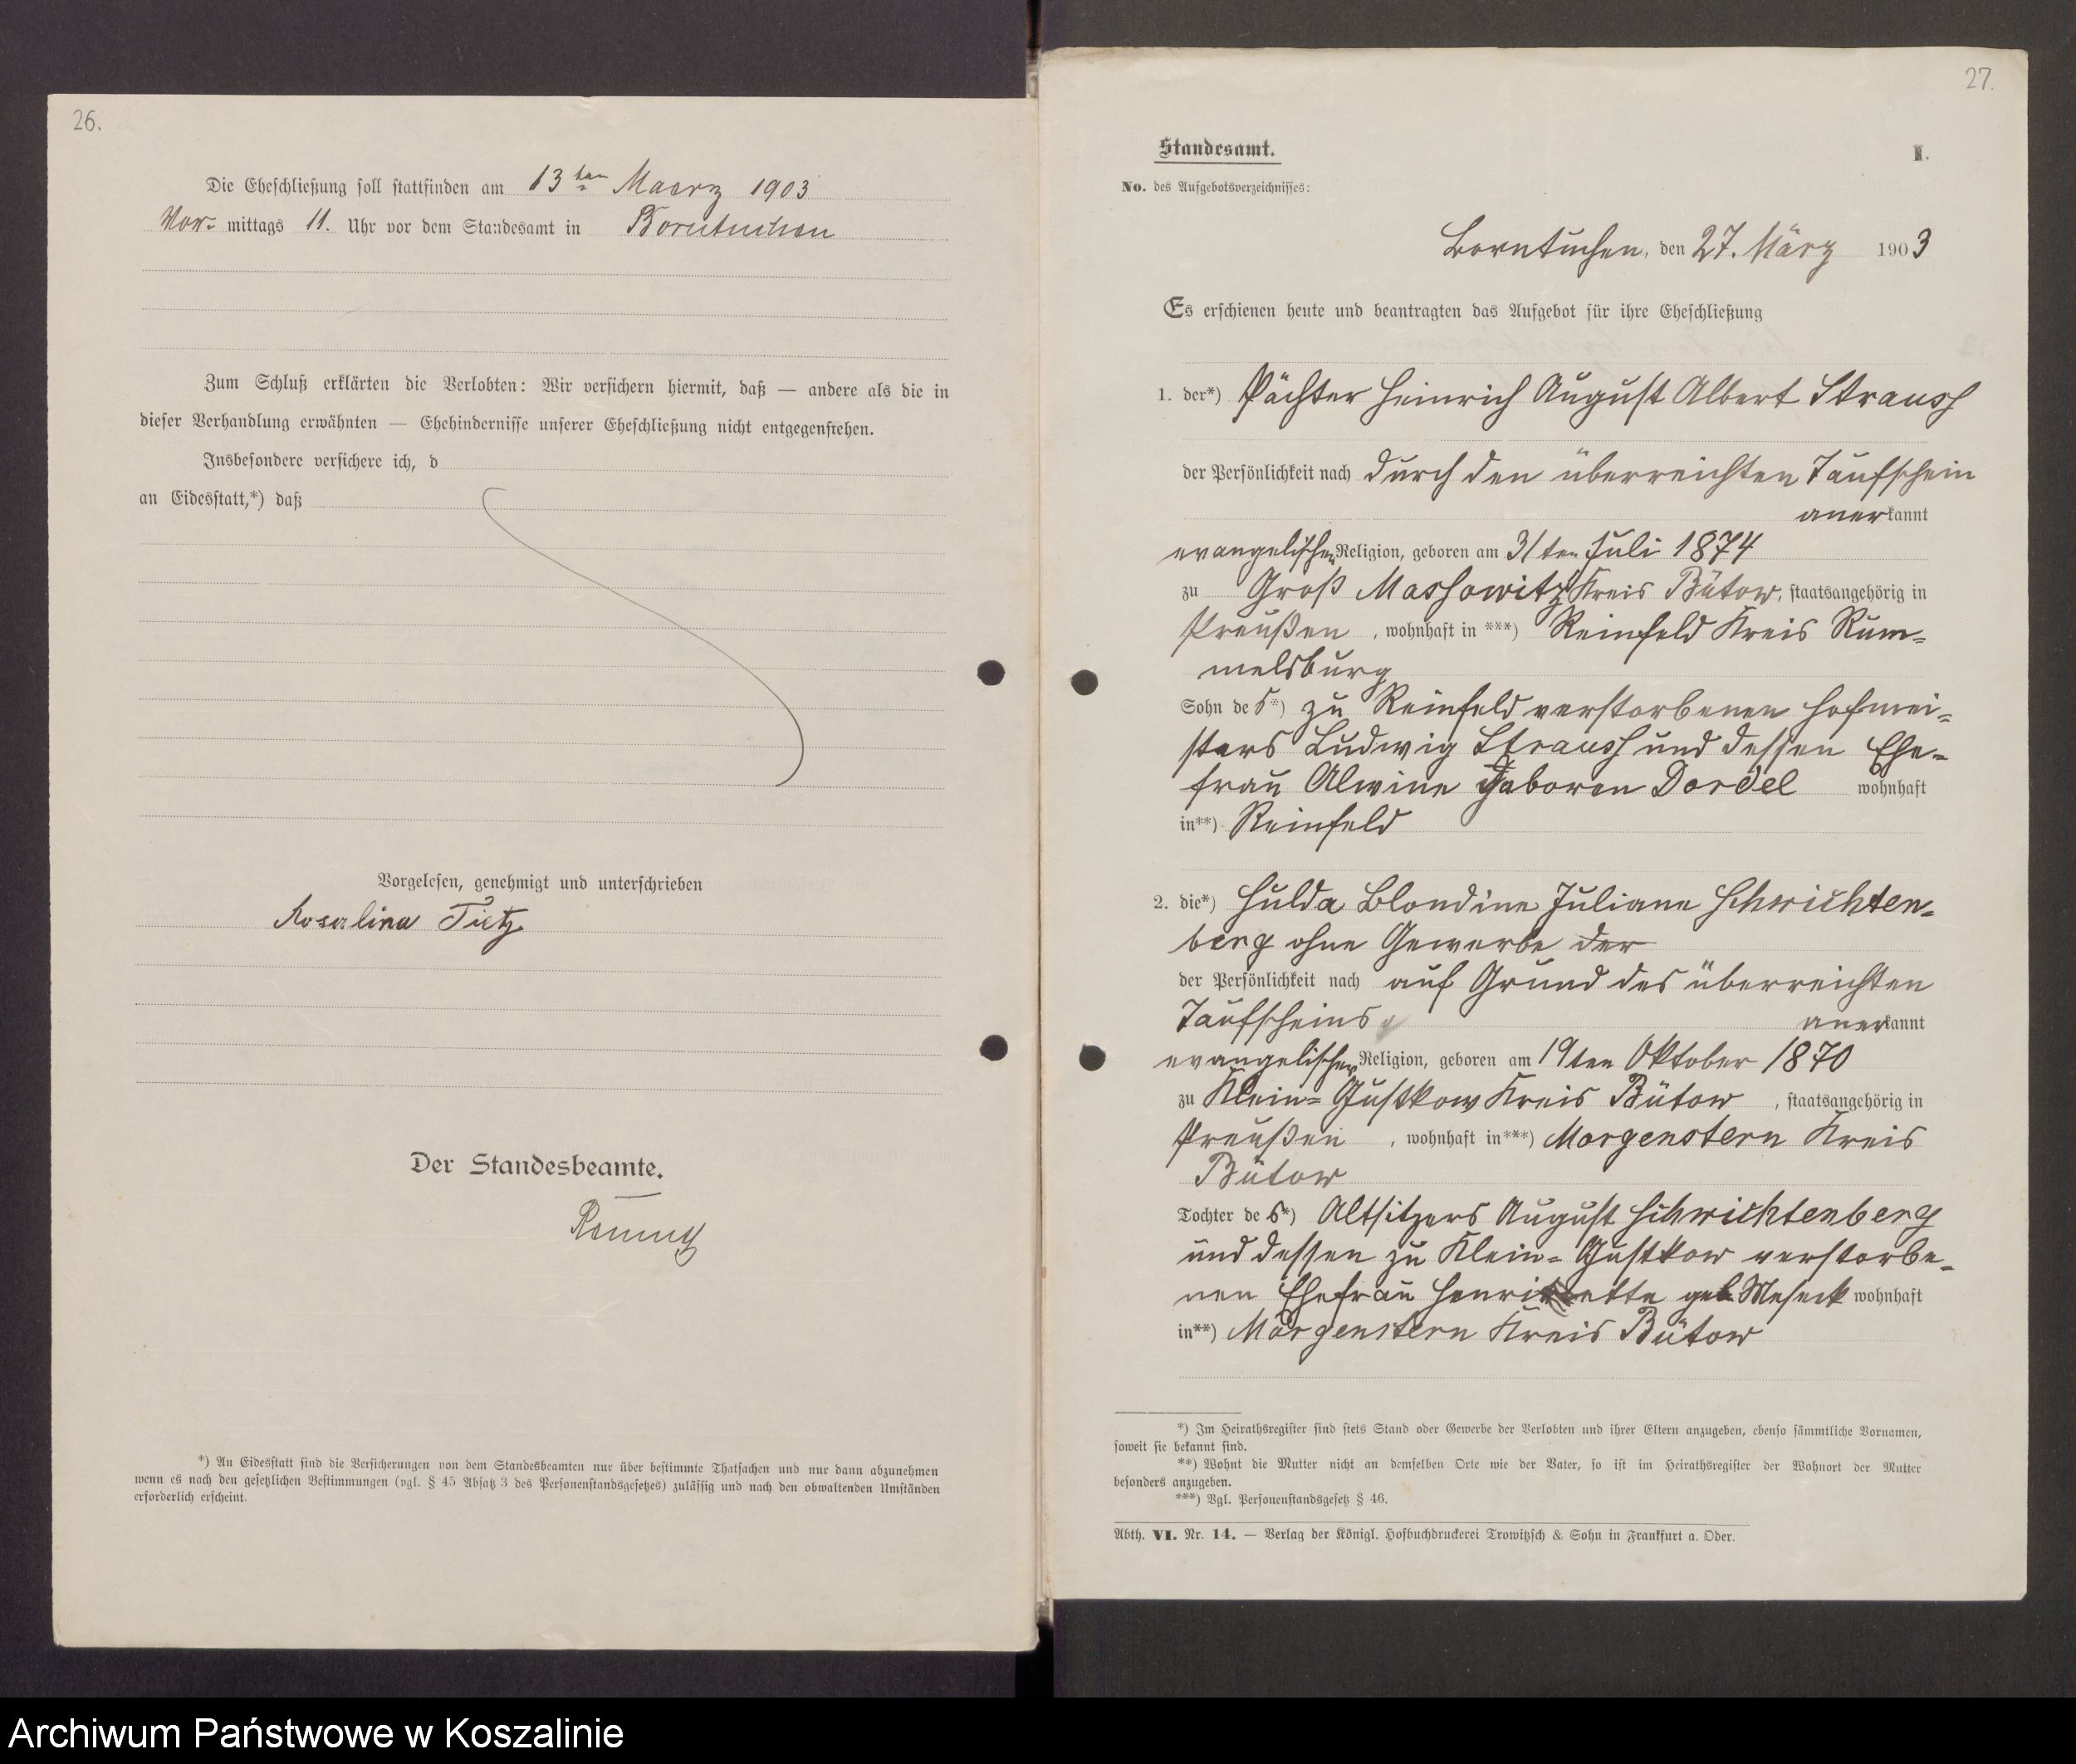 26.
Die Eheschließung soll stattfinden am 13ten Maerz 1903
Vor- mittags 11. Uhr vor dem Standesamt in Borntuchen
Zum Schluß erklärten die Verlobten: Wir versichern hiermit, daß — andere als die in
dieser Verhandlung erwähnten — Ehehindernisse unserer Eheschließung nicht entgegenstehen.
Insbesondere versichere ich, d
an Eidesstatt,*) daß
Vorgelesen, genehmigt und unterschrieben
Rosalina Tietz
Der Standesbeamte.
*) An Eidesstatt sind die Versicherungen von dem Standesbeamten nur über bestimmte Thatsachen und nur dann abzunehmen
wenn es nach den gesetzlichen Bestimmungen (vgl. § 45 Absatz 3 des Personenstandsgesetzes) zulässig und nach den obwaltenden Umständen
erforderlich erscheint.
27.
Standesamt.
I.
No. des Aufgebotsverzeichnisses:
Borntuchen, den 27. März 1903
Es erschienen heute und beantragten das Aufgebot für ihre Eheschließung
1. der*) Pächter Heinrich August Albert Straush
der Persönlichkeit nach durch den überreichten Taufschein
anerkannt
evangelischer Religion, geboren am 31ten Juli 1874
zu Groß Massowitz Kreis Bütow, staatsangehörig in
Preußen, wohnhaft in ***) Reinfeld Kreis Rum-
melsburg
Sohn des*) zu Reinfeld verstorbenen Hofmei-
sters Ludwig Straush und dessen Ehe-
frau Alwine geboren Dordel wohnhaft
in**) Reinfeld
2. die*) Hulda Blondine Juliane Schwichten-
berg ohne Gewerbe der
der Persönlichkeit nach auf Grund des überreichten
Taufscheins anerkannt
evangelischer Religion, geboren am 19ten Oktober 1870
zu Klein-Gustkow Kreis Bütow, staatsangehörig in
Preußen, wohnhaft in***) Morgenstern Kreis
Bütow
Tochter des*) Altsitzers August Schwichtenberg
und dessen zu Klein-Gustkow verstorbe-
nen Ehefrau Henriette geb. Meseck wohnhaft
in**) Morgenstern Kreis Bütow
*) Im Heirathsregister sind stets Stand oder Gewerbe der Verlobten und ihrer Eltern anzugeben, ebenso sämmtliche Vornamen,
soweit sie bekannt sind.
**) Wohnt die Mutter nicht an demselben Orte wie der Vater, so ist im Heirathsregister der Wohnort der Mutter
besonders anzugeben.
***) Vgl. Personenstandsgesetz § 46.
Abth. VI. Nr. 14. — Verlag der Königl. Hofbuchdruckerei Trowitzsch & Sohn in Frankfurt a. Oder.
Archiwum Państwowe w Koszalinie